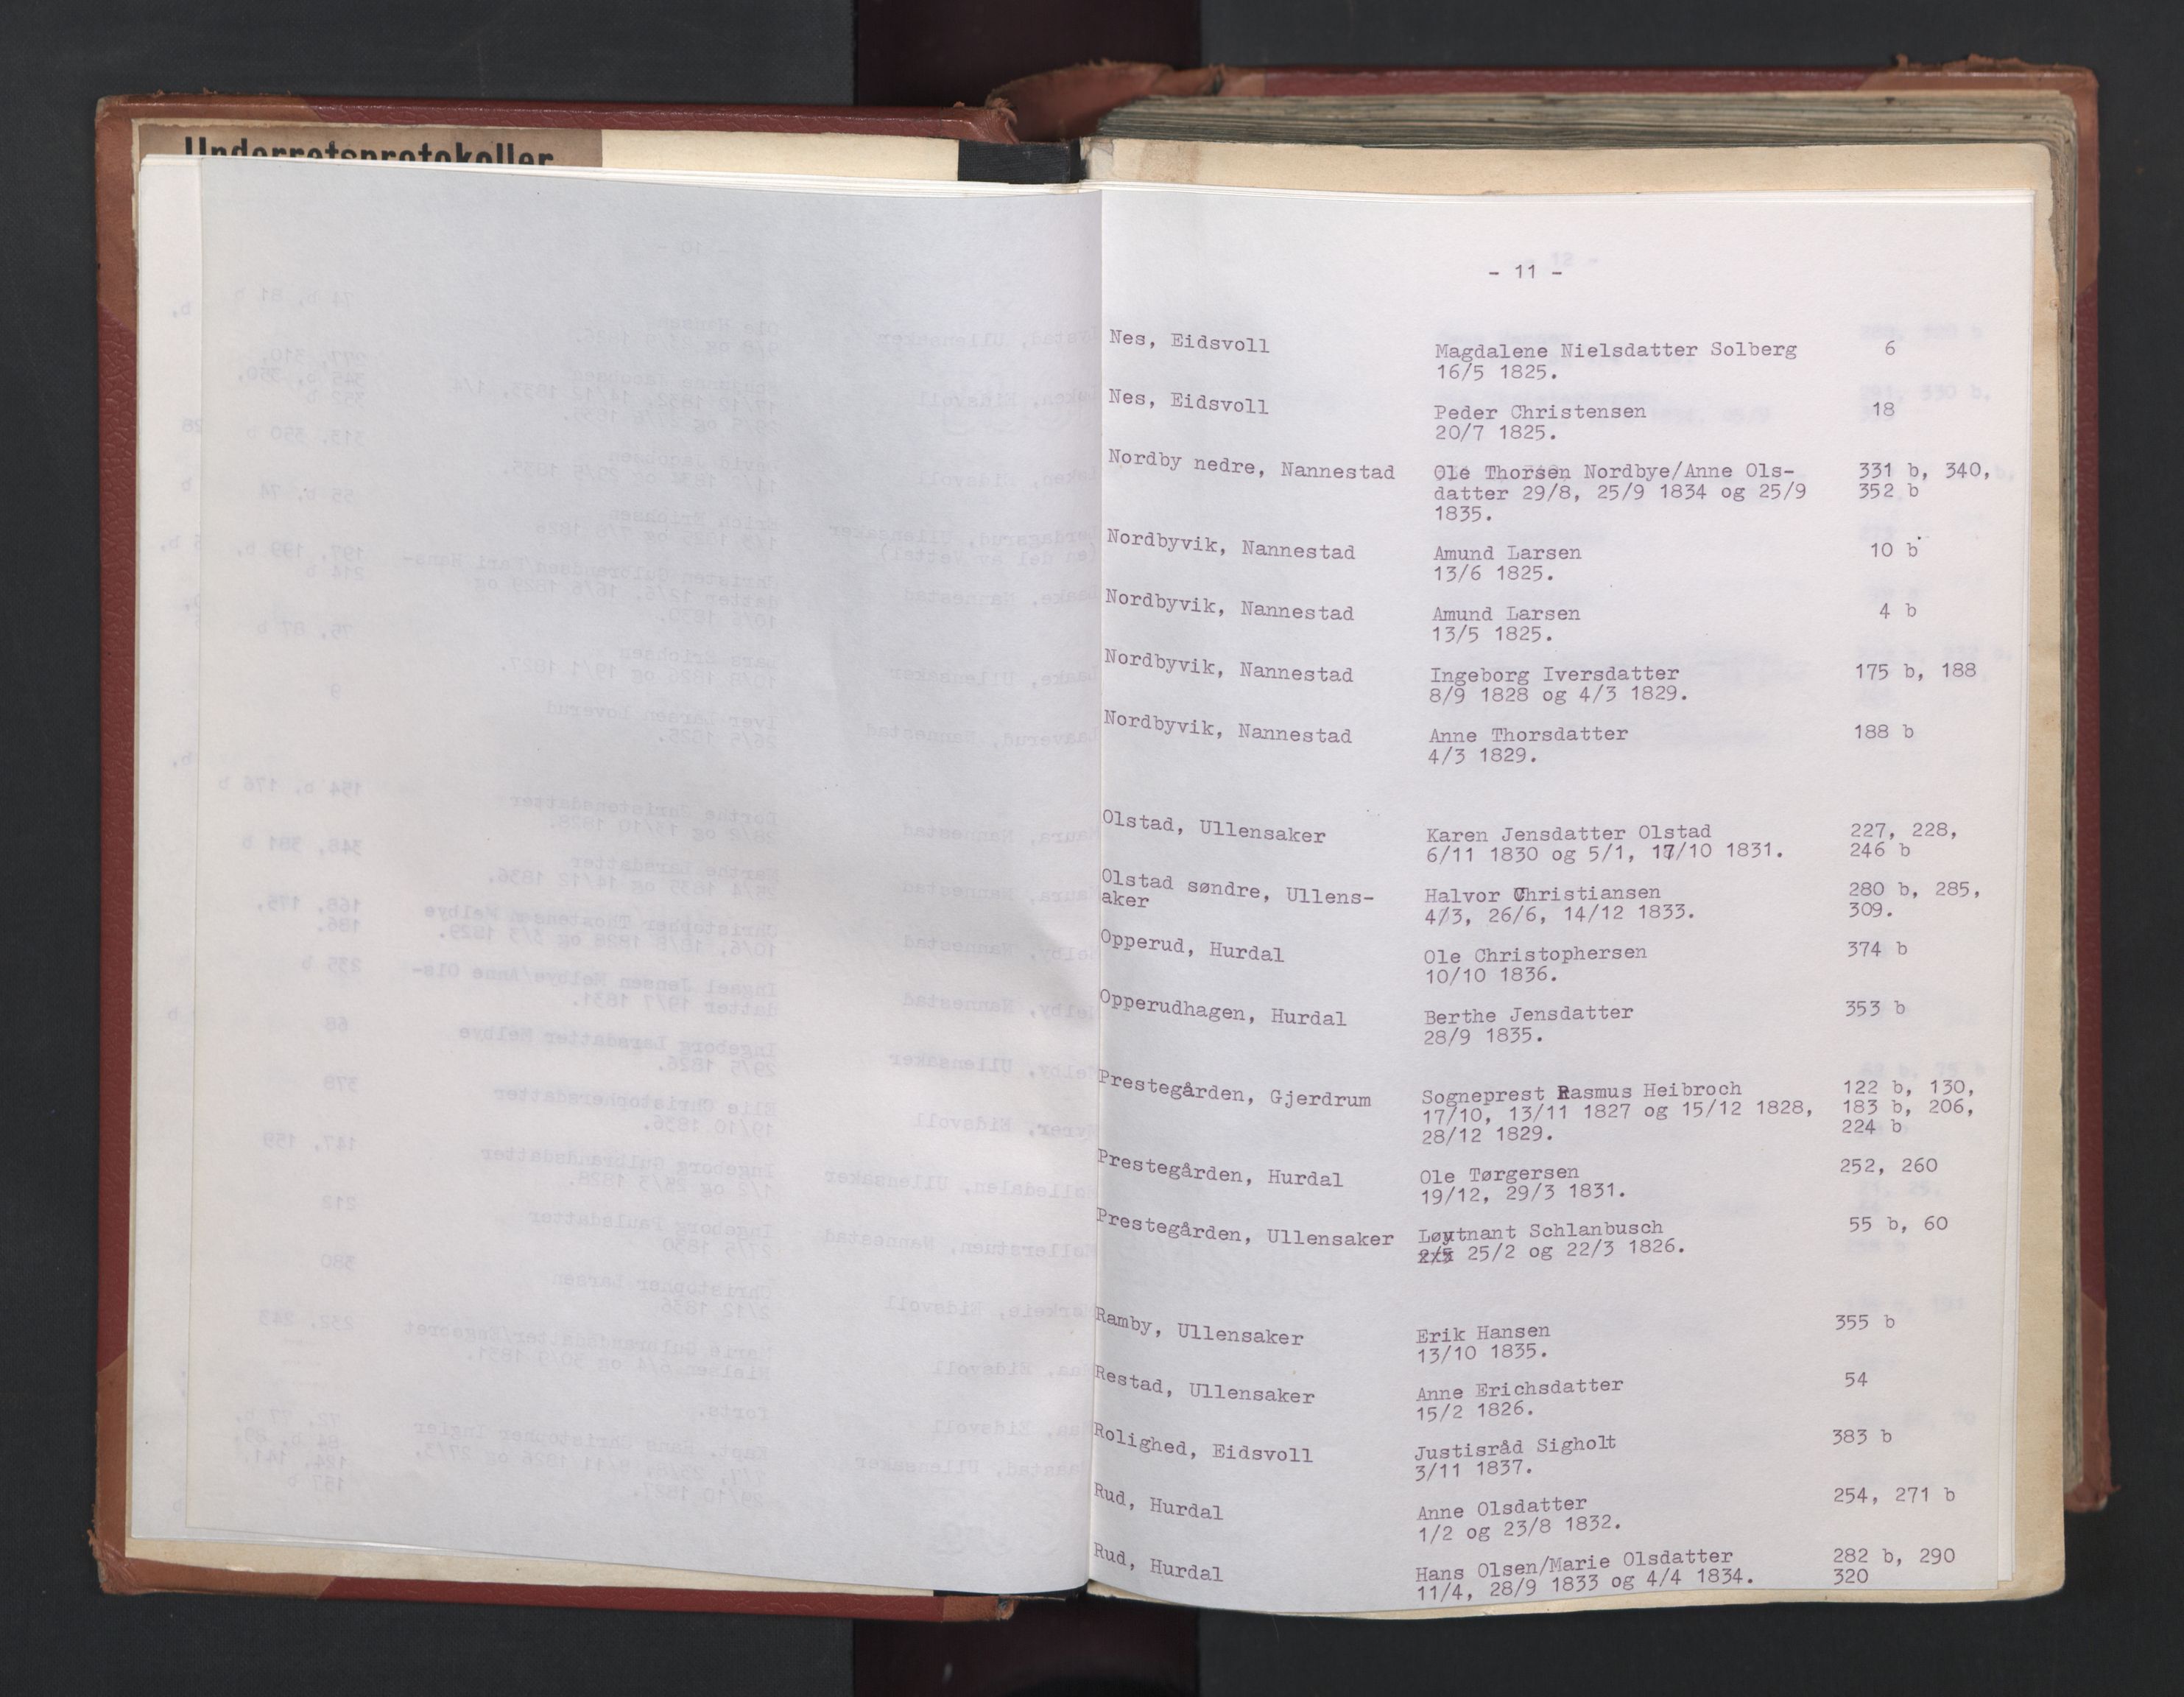 Underretsprotokoller
- 11 -
Nes, Eidsvoll Magdalene Nielsdatter Solberg 6
16/5 1825.
Nes, Eidsvoll Peder Christensen 18
20/7 1825.
Nordby nedre, Nannestad Ole Thorsen Nordbye/Anne Ols- 331 b, 340,
datter 29/8, 25/9 1834 og 25/9 352 b
1835.
Nordbyvik, Nannestad Amund Larsen 10 b
13/6 1825.
Nordbyvik, Nannestad Amund Larsen 4 b
13/5 1825.
Nordbyvik, Nannestad Ingeborg Iversdatter 175 b, 188
8/9 1828 og 4/3 1829.
Nordbyvik, Nannestad Anne Thorsdatter 188 b
4/3 1829.
Olstad, Ullensaker Karen Jensdatter Olstad 227, 228,
6/11 1830 og 5/1, 17/10 1831. 246 b
Olstad søndre, Ullens- Halvor Christiansen 280 b, 285,
aker 4/3, 26/6, 14/12 1833. 309.
Opperud, Hurdal Ole Christophersen 374 b
10/10 1836.
Opperudhagen, Hurdal Berthe Jensdatter 353 b
28/9 1835.
Prestegården, Gjerdrum Sogneprest Rasmus Heibroch 122 b, 130,
17/10, 13/11 1827 og 15/12 1828, 183 b, 206,
28/12 1829. 224 b
Prestegården, Hurdal Ole Tørgersen 252, 260
19/12, 29/3 1831.
Prestegården, Ullensaker Løytnant Schlanbusch 55 b, 60
25/2 og 22/3 1826.
Ramby, Ullensaker Erik Hansen 355 b
13/10 1835.
Restad, Ullensaker Anne Erichsdatter 54
15/2 1826.
Rolighed, Eidsvoll Justisråd Sigholt 383 b
3/11 1837.
Rud, Hurdal Anne Olsdatter 254, 271 b
1/2 og 23/8 1832.
Rud, Hurdal Hans Olsen/Marie Olsdatter 282 b, 290
11/4, 28/9 1833 og 4/4 1834. 320